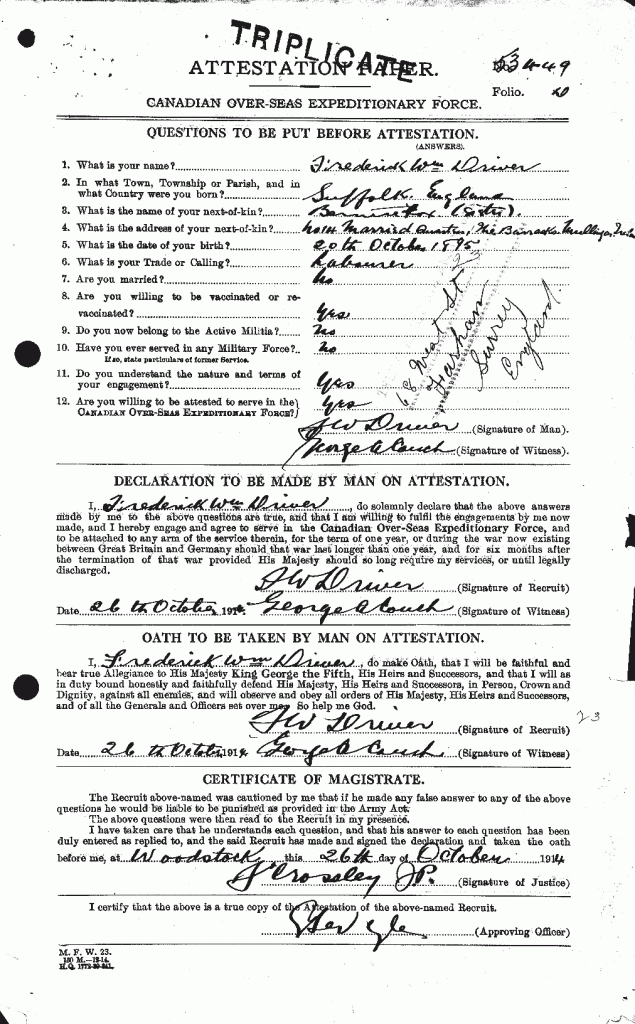 TRIPLICATE
ATTESTATION PAPER.
No. 53449
Folio.
CANADIAN OVER-SEAS EXPEDITIONARY FORCE.
QUESTIONS TO BE PUT BEFORE ATTESTATION.
(ANSWERS).
1. What is your name? Frederick Wm Driver
2. In what Town, Township or Parish, and in
what Country were you born? Suffolk, England
3. What is the name of your next-of-kin? (Sister).
4. What is the address of your next-of-kin? Married Quarters, The Barracks,
5. What is the date of your birth? 20th October 1895
6. What is your Trade or Calling? Labourer
7. Are you married? No
8. Are you willing to be vaccinated or re-
vaccinated? Yes
9. Do you now belong to the Active Militia? No
10. Have you ever served in any Military Force? No
If so, state particulars of former Service.
11. Do you understand the nature and terms of
your engagement? Yes
12. Are you willing to be attested to serve in the
CANADIAN OVER-SEAS EXPEDITIONARY FORCE? Yes
68 West St
Farham
Surrey
England
F W Driver (Signature of Man).
George A Couch (Signature of Witness).
DECLARATION TO BE MADE BY MAN ON ATTESTATION.
I, Frederick Wm Driver, do solemnly declare that the above answers
made by me to the above questions are true, and that I am willing to fulfil the engagements by me now
made, and I hereby engage and agree to serve in the Canadian Over-Seas Expeditionary Force, and
to be attached to any arm of the service therein, for the term of one year, or during the war now existing
between Great Britain and Germany should that war last longer than one year, and for six months after
the termination of that war provided His Majesty should so long require my services, or until legally
discharged.
F W Driver (Signature of Recruit)
Date 26th October 1914. George A Couch (Signature of Witness)
OATH TO BE TAKEN BY MAN ON ATTESTATION.
I, Frederick Wm Driver, do make Oath, that I will be faithful and
bear true Allegiance to His Majesty King George the Fifth, His Heirs and Successors, and that I will as
in duty bound honestly and faithfully defend His Majesty, His Heirs and Successors, in Person, Crown and
Dignity, against all enemies, and will observe and obey all orders of His Majesty, His Heirs and Successors,
and of all the Generals and Officers set over me. So help me God.
F W Driver (Signature of Recruit)
23
Date 26th October 1914 George A Couch (Signature of Witness)
CERTIFICATE OF MAGISTRATE.
The Recruit above-named was cautioned by me that if he made any false answer to any of the above
questions he would be liable to be punished as provided in the Army Act.
The above questions were then read to the Recruit in my presence.
I have taken care that he understands each question, and that his answer to each question has been
duly entered as replied to, and the said Recruit has made and signed the declaration and taken the oath
before me, at Woodstock this 26th day of October 1914
Crossley JP. (Signature of Justice)
I certify that the above is a true copy of the Attestation of the above-named Recruit.
(Approving Officer)
M. F. W. 23.
150 M.—12-14.
H.Q. 1772-39-241.